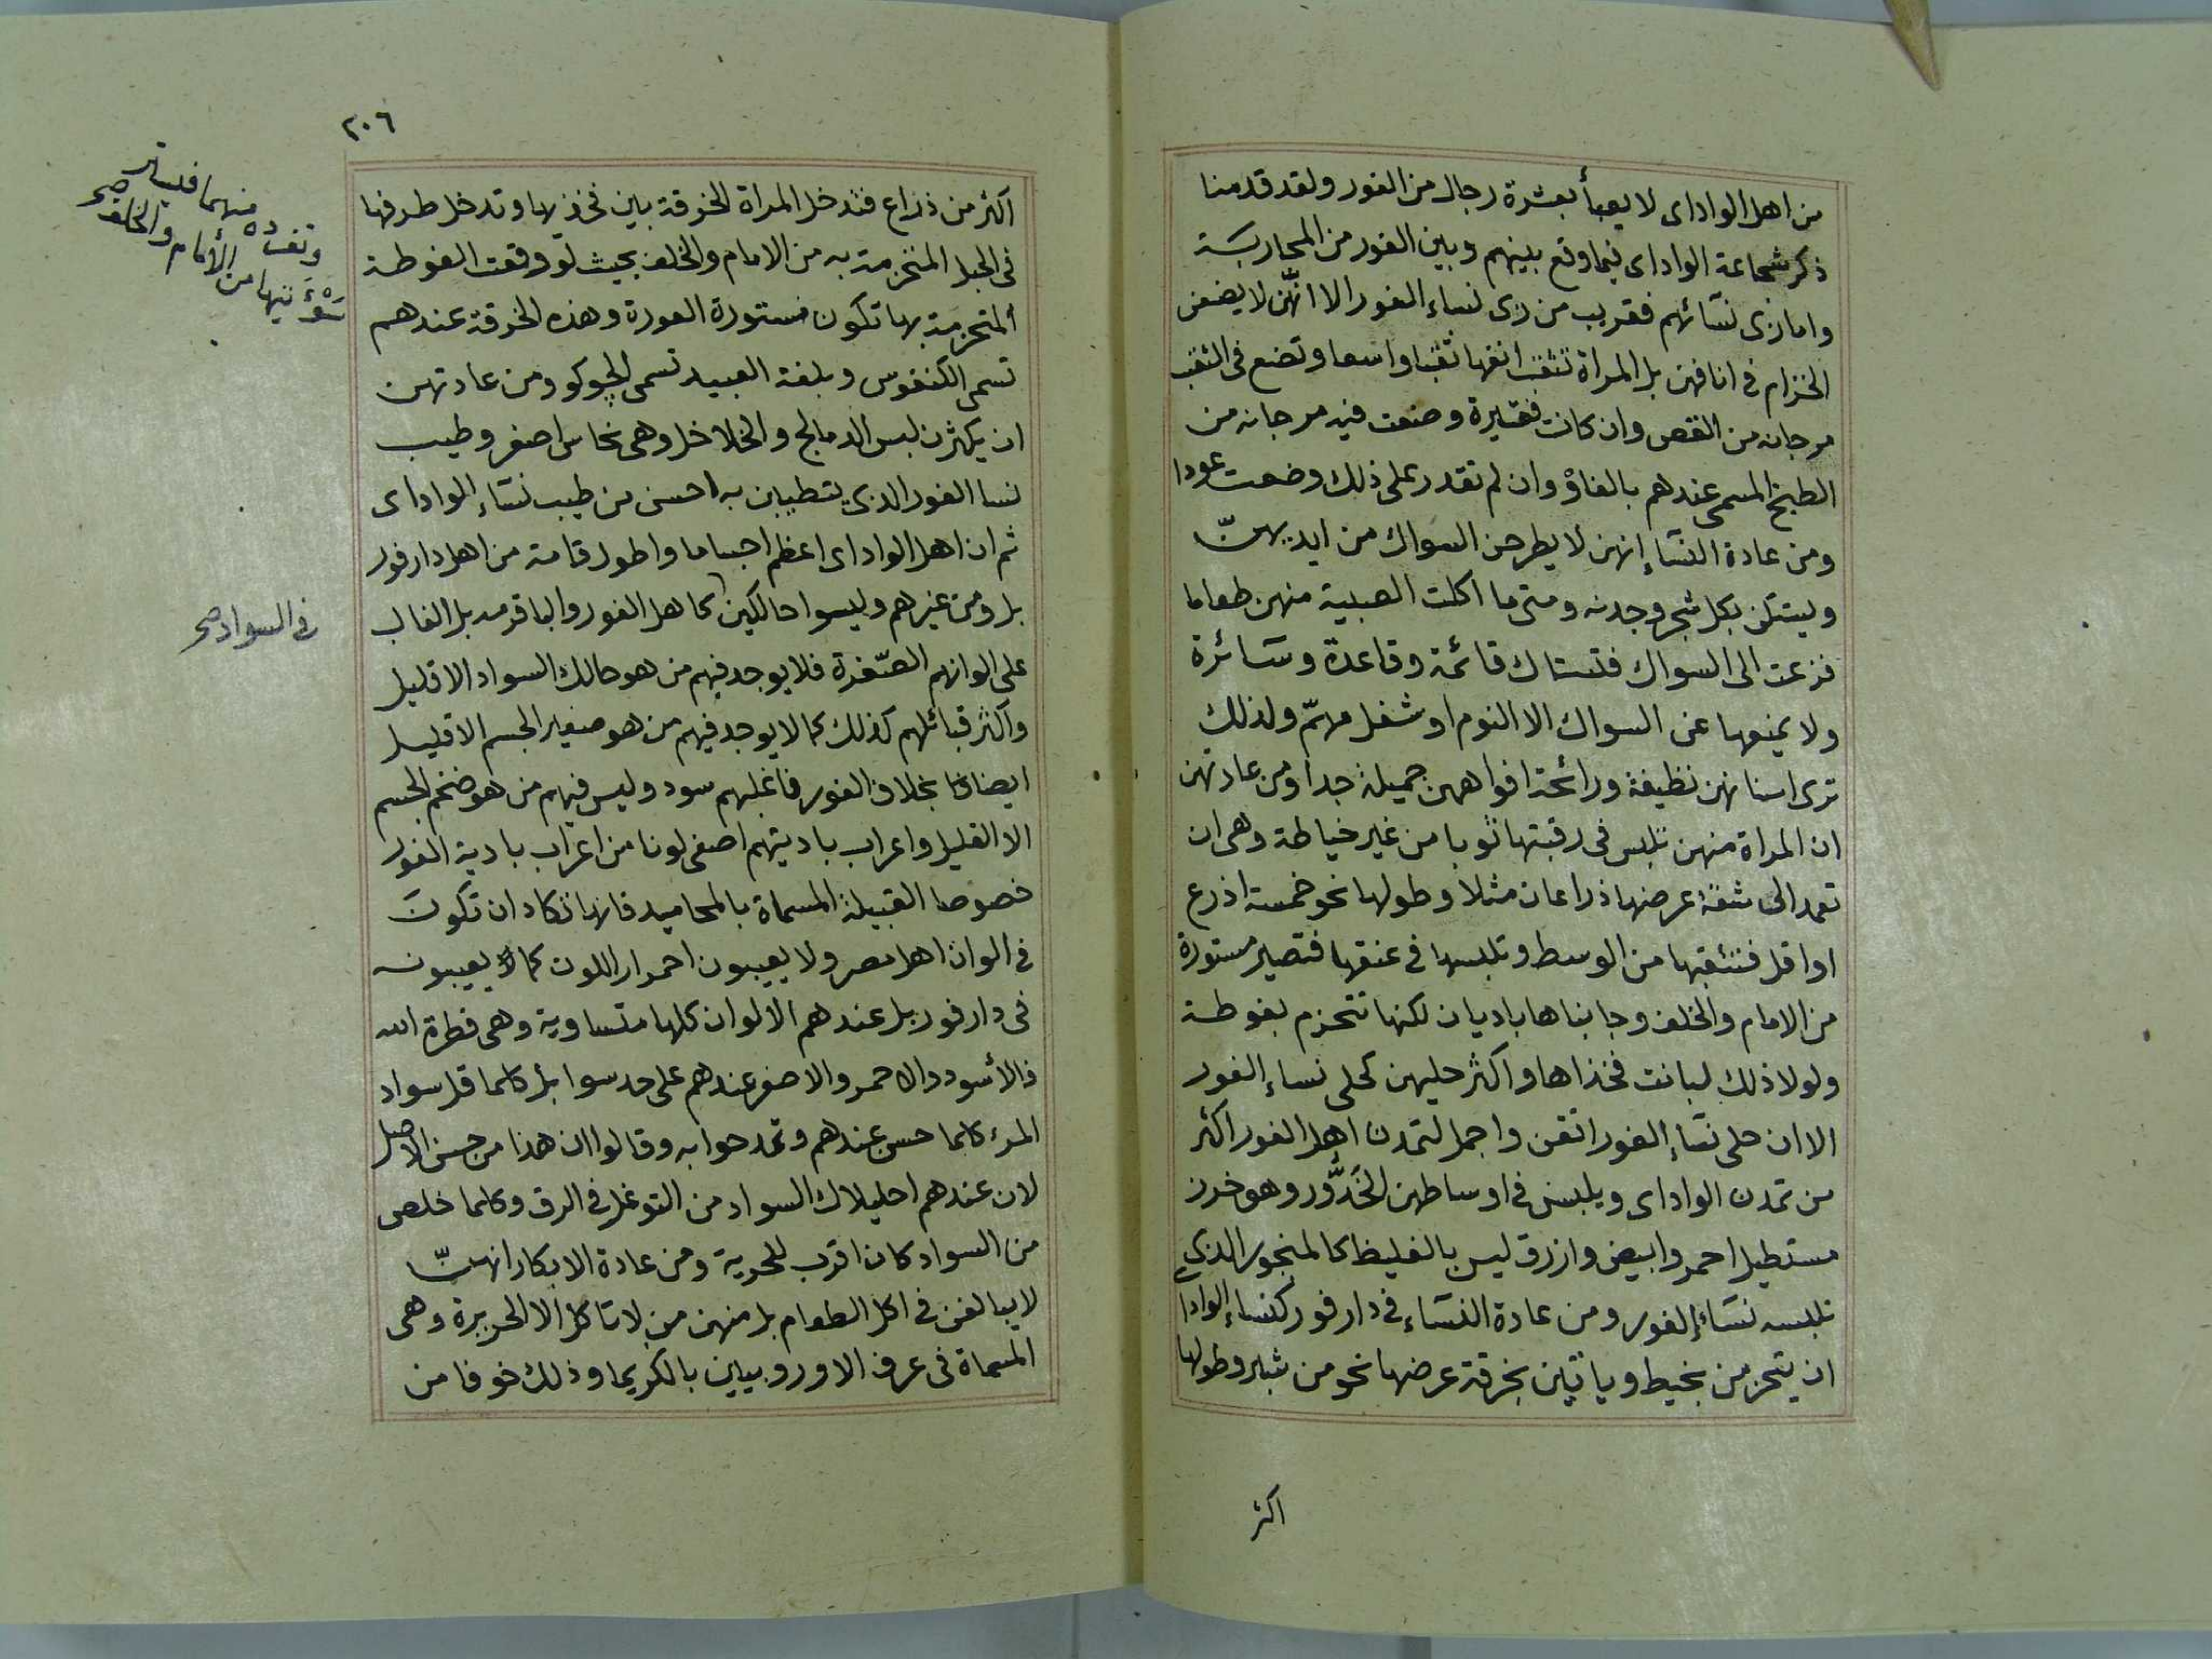 من اهل الواداى لا يعبأ بعشرة رجال من الفور ولقد قدمنا
ذكر شجاعة الواداى فيما وقع بينهم وبين الفور من المحاربة
واما زى نسائهم فقريب من زى نساء الفور الا انهن لا يضعن
الخزام فى انافهن بل المراة تثقب انفها ثقبا واسعا وتضع فى الثقب
مرجانه من القص وان كانت فقيرة وضعت فيه مرجانه من
الطبخ المسمى عندهم بالفاو وان لم تقدر على ذلك وضعت عودا
ومن عادة النساء إنهن لا يطرحن السواك من ايديهنّ
ويستكن بكل شجر وجدنه ومتى ما اكلت الصبية منهن طعاما
فزعت الى السواك فتستاك قائمة وقاعدة وسائرة
ولا يمنعها عن السواك الا النوم او شغل مهمّ ولذلك
ترى اسنانهن نظيفة ورائحة افواههن جميلة جدا ومن عادتهن
ان المراة منهن تلبس فى رقبتها ثوبا من غير خياطة وهى ان
تعمد الى شقة عرضها ذراعان مثلا وطولها نحو خمسة اذرع
او اقل فتثقبها من الوسط وتلبسها فى عنقها فتصير مستورة
من الامام والخلف وجانباها باديان لكنها تتحزم بفوطة
ولولا ذلك لبانت فخذاها واكثر حليهن كحلى نساء الفور
الا ان حلى نساء الفور اتقن واجمل لتمدن اهل الفور اكثر
من تمدن الواداى ويلبسن فى اوساطهن الخَدُّور وهو خرز
مستطيل احمر وابيض وازرق ليس بالغليظ كالمنجور الذى
تلبسه نساء الفور ومن عادة النساء فى دارفور كنساء الوادا
ان يتحزمن بخيط وياتين بخرقة عرضها نحو من شبر وطولها
اكثر
٢٠٦
اكثر من ذراع فتدخل المراة الخرقة بين فخذيها وتدخل طرفها
فى الحبل المتحزمة به من الامام والخلف بحيث لو وقعت الفوطة
المتحزمة بها تكون مستورة العورة وهذه الخرقة عندهم
تسمى الكنفوس وبلغة العبيد تسمى الچوكو ومن عادتهن
ان يكثرن لبس الدمالج والخلاخل وهى نحاس اصفر وطيب
نسا الفور الذى يتطيبن به احسن من طيب نساء الواداى
ثم ان اهل الواداى اعظم اجساما واطول قامة من اهل دارفور
بل ومن غيرهم وليسوا حالكين كاهل الفور والباقرمه بل الغالب
على الوانهم الصّفرة فلا يوجد فيهم من هو حالك السواد الا قليل
واكثر قبائلهم كذلك كما لا يوجد فيهم من هو صغير الجسم الا قليل
ايضا بخلاف الفور فاغلبهم سود وليس فيهم من هو ضخم الجسم
الا القليل واعراب باديتهم اصفى لونا من اعراب بادية الفور
خصوصا القبيلة المسماة بالمحاميد فانها تكاد ان تكون
فى الوان اهل مصر ولا يعيبون احمرار اللون كما يعيبونه
فى دارفور بل عندهم الالوان كلها متساوية وهى فطرة الله
فالأسود والاحمر والاصفر عندهم على حد سوا بل كلما قل سواد
المرء كلما حسن عندهم وتمدحوا به وقالوا ان هذا من حسن الاصل
لان عندهم احليلاك السواد من التوغل فى الرق وكلما خلص
من السواد كان اقرب للحرية ومن عادة الابكار انهنّ
لا يبالغن فى اكل الطعام بل منهن من لا تاكل الا الحريرة وهى
المسماة فى عرف الاوروبيين بالكريما وذلك خوفا من
منهما
من الأمام والخلف صح
فى السواد صح